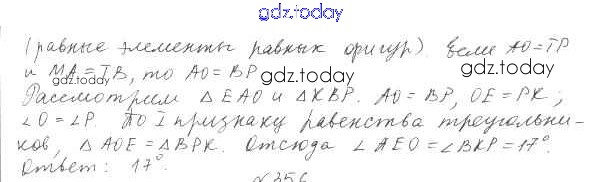 gdz.today
(равные элементы равных фигур). Если AO=TP
и MA=TB, то AO=BP.
gdz.today
gdz.today
Рассмотрим △EAO и △KBP. AO=BP, OE=PK;
∠O=∠P. По I признаку равенства треугольни-
ков, △AOE=△BPK. Отсюда ∠AEO=∠BKP=17°.
Ответ: 17°.
gdz.today
№356